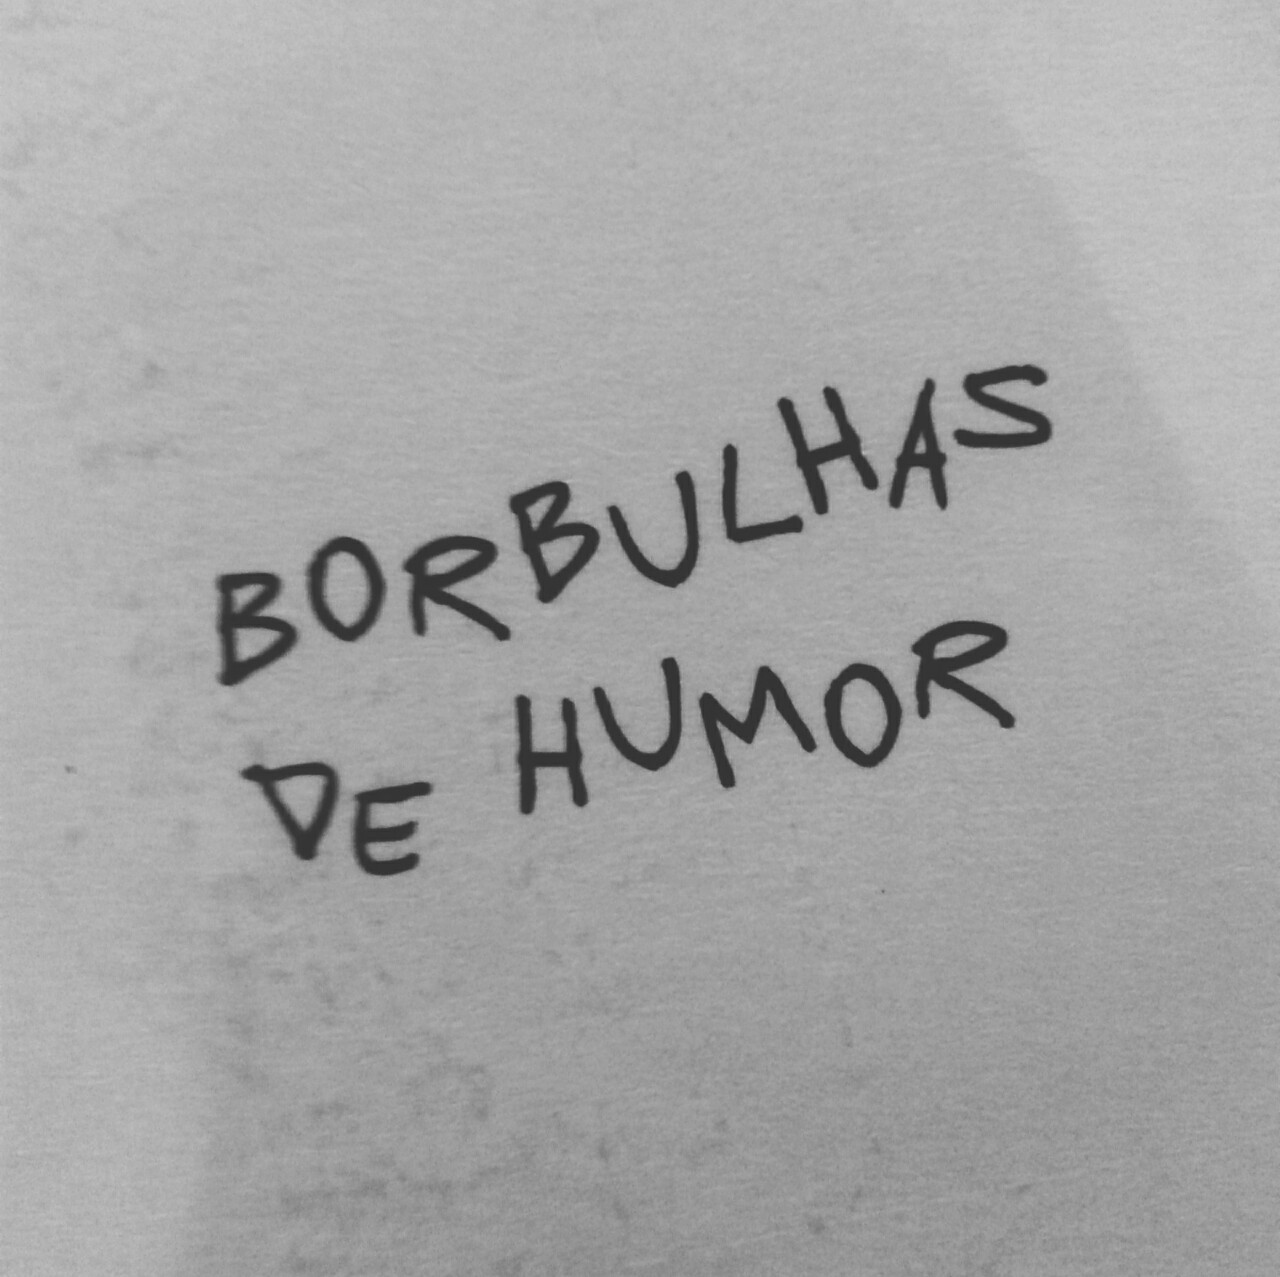 BORBULHAS
DE HUMOR